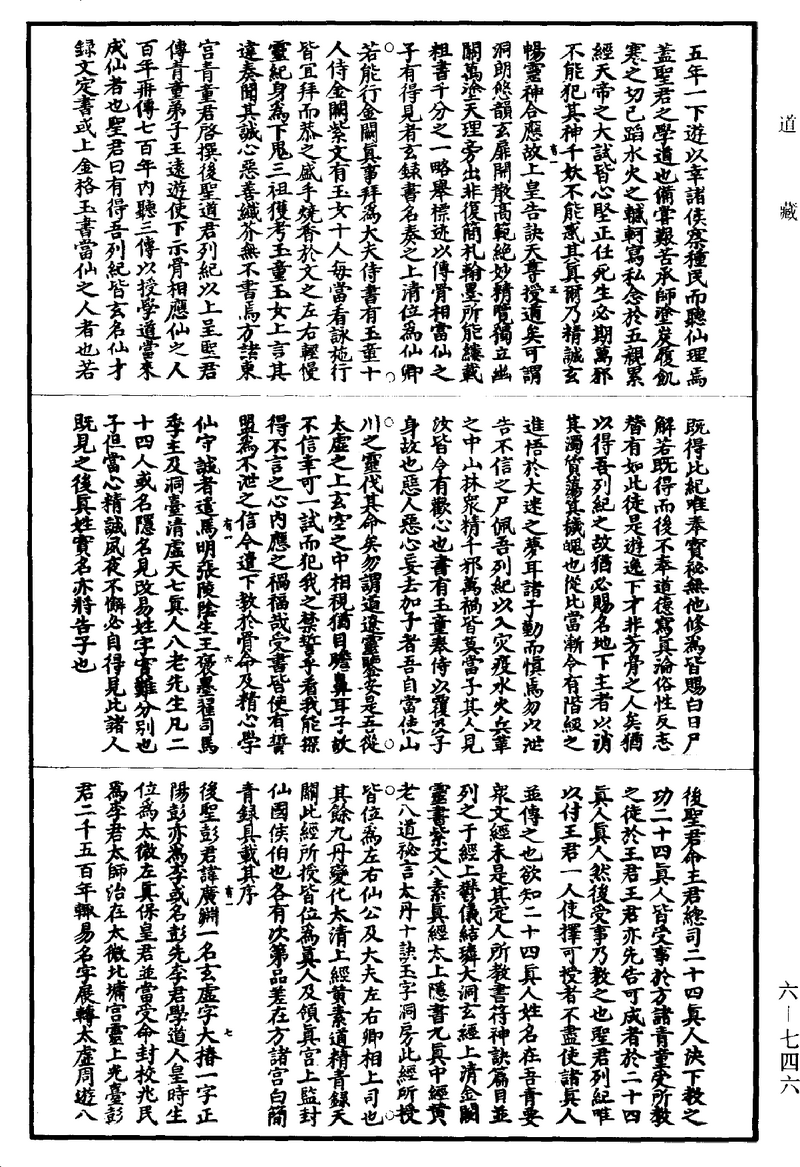 道藏
五年一下遊以幸諸侯察種民而聽仙理焉
蓋聖君之學道也備嘗艱苦承師塗炭履飢
寒之切己蹈水火之轗軻寫私念於五視累
經天帝之大試皆心堅正任死生必期萬邪
不能犯其神千妖不能惑其真爾乃精誠玄
暢靈神合應故上皇告訣天尊授道矣可謂
洞朗悠韻玄扉開散高範絶妙精覽獨立幽
關萬塗天理旁出非復簡札翰墨所能縷載
粗書千分之一略舉標迹以傳骨相當仙之
子有得見者玄録書名奏之上清位爲仙卿
若能行金闕真事拜爲大夫侍書有玉童十
人侍金闕紫文有玉女十人每當看詠施行
皆宜拜而恭之盛手燒香於文之左右輕慢
靈紀身爲下鬼三祖獲考玉童玉女上言其
違奏聞其誠心惡善纖芥無不書焉方諸東
宮青童君啓撰後聖道君列紀以上呈聖君
傳青童弟子王遠遊使下示骨相應仙之人
百年冊傳七百年內聽三傳以授學道當來
成仙者也聖君曰有得吾列紀皆玄名仙才
録文定書或上金格玉書當仙之人者也若
既得此紀唯奉寳秘無他修爲皆賜白日尸
解若既得而後不奉道德寫真淪俗性反志
替有如此徒是遊逸下才非芳骨之人矣猶
以得吾列紀之故猶必賜名地下主者以誚
其濁質蕩其穢魄也從此當漸令有階級之
進悟於大迷之夢耳諸子勤而慎焉勿以泄
告不信之尸佩吾列紀以入灾疫水火兵革
之中山林衆精千邪萬禍皆莫當子其人見
汝皆令有歡心也書有玉童奉侍以覆及子
身故也惡人惡心妄去加子者吾自當使山
川之靈伐其命矣勿謂逍遥靈鑒安是五從
太虛之上玄空之中相視猶目瞻鼻耳子故
不信幸可一試而犯我之禁誓乎看我能探
得不言之心內應之禍福哉受書皆使有誓
盟爲不泄之信今遣下教於骨命及精心學
仙守誠者遣馬明張陵陰生王褒墨翟司馬
季主及洞臺清虛天七真人八老先生凡二
十四人或名隱名見改易姓字實難分別也
子但當心精誠夙夜不懈必自得見此諸人
既見之後真姓實名亦將告子也
後聖君命王君總司二十四真人決下教之
功二十四真人皆受事於方諸青童受所教
之徒於王君王君亦先告可成者於二十四
真人真人然後受事乃教之也聖君列紀唯
以付王君一人使擇可授者不盡使諸真人
並傳之也欲知二十四真人姓名在吾青要
衆文經末是其定人所教書符神訣篇目並
列之于經上鬱儀結璘大洞玄經上清金闕
靈書紫文八素真經太上隱書九真中經黄
老八道秘言太丹十訣玉字洞房此經所授
皆位爲左右仙公及大夫左右卿相上司也
其餘九丹變化太清上經黄素道精青録天
關此經所授皆位爲真人及領真宮上監封
仙國侯伯也各有次第品差在方諸宮白簡
青録具載其序
後聖彭君諱廣淵一名玄虛字大椿一字正
陽彭亦爲李或名彭先李君學道人皇時生
位爲太微左真保皇君並當受命封校兆民
爲李君太師治在太微北墉宮靈上光臺彭
君二千五百年輙易名字展轉太虛周遊八
六－七四六